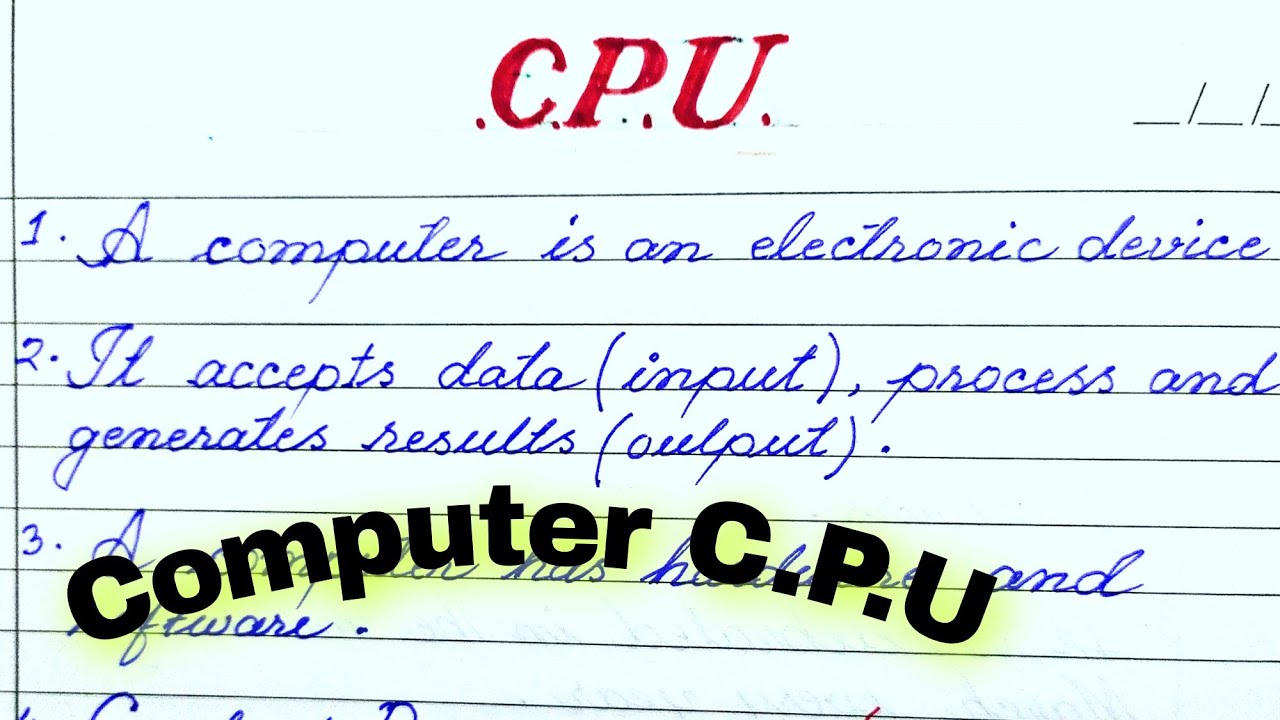 .C.P.U.
_/_/_
1. A computer is an electronic device
2. It accepts data (input), process and
generates results (output).
3. A computer has hardware and
software.
Computer C.P.U